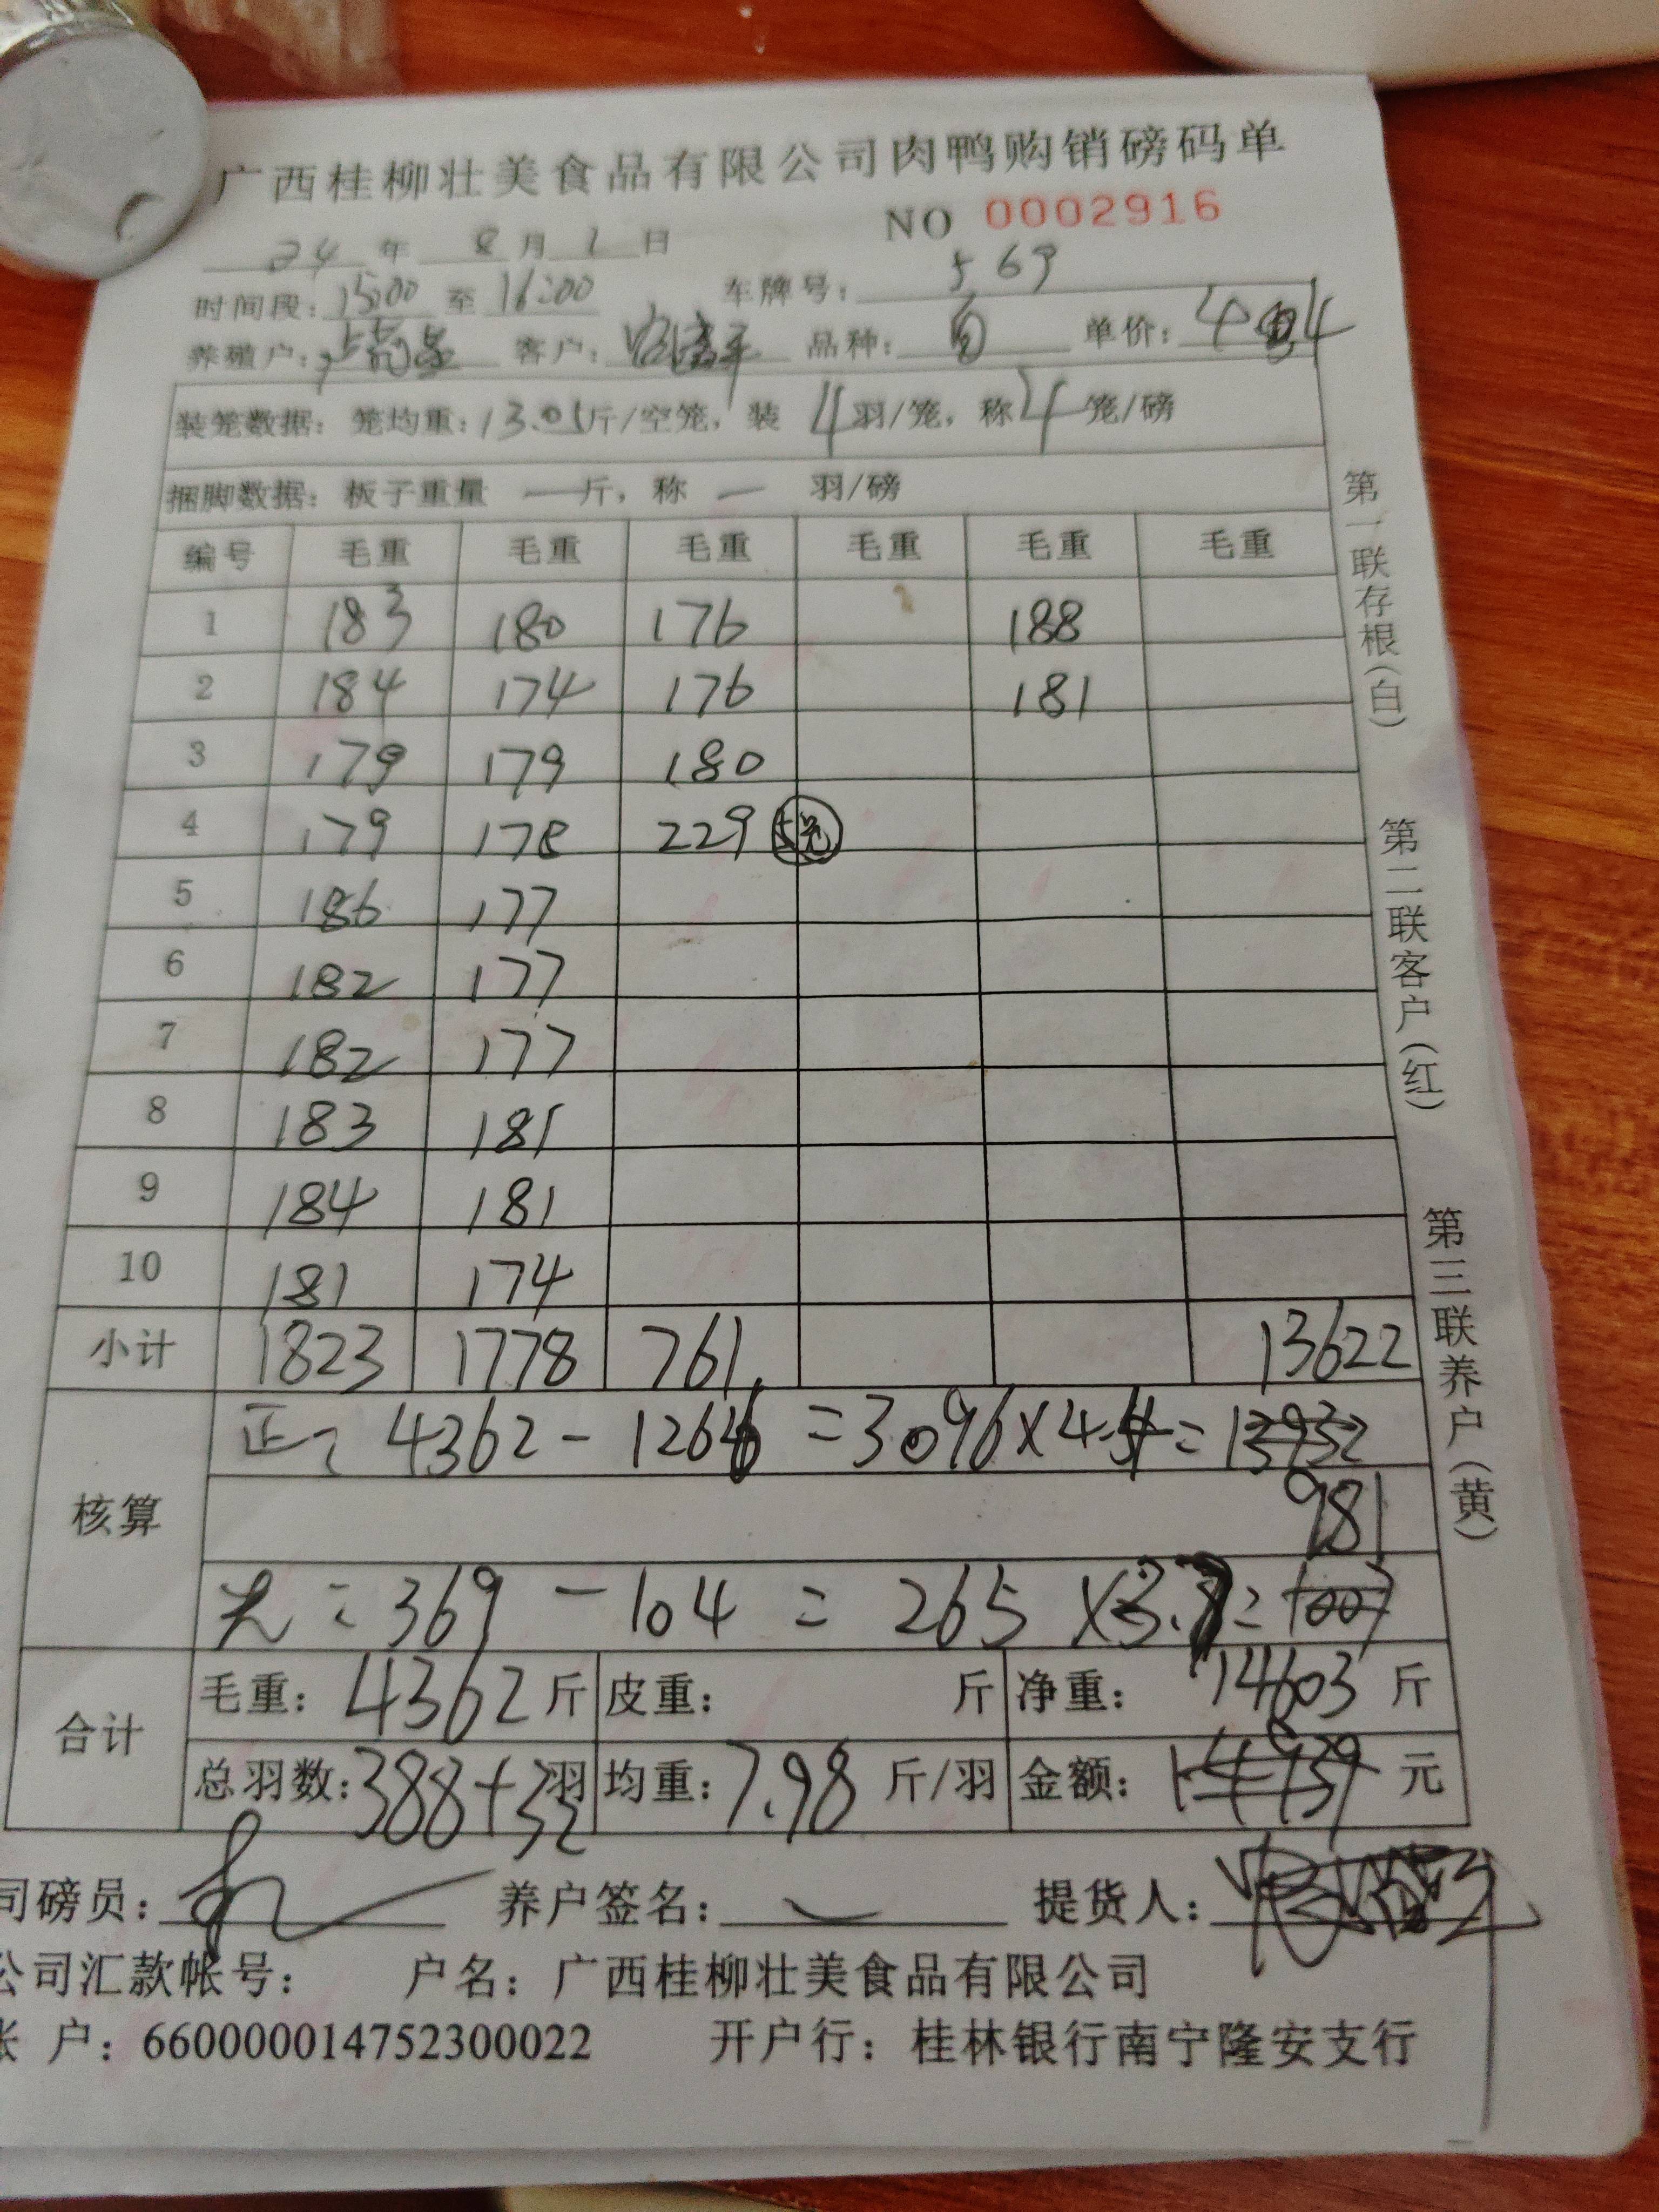 广西桂柳壮美食品有限公司肉鸭购销磅码单
NO 0002916
24 年 8 月 1 日
时间段：15:00 至 16:00 车牌号： 569
养殖户： 客户： 品种： 单价： 4.4
装笼数据：笼均重：13.05斤/空笼，装 4 羽/笼，称 4 笼/磅
捆脚数据：板子重量 — 斤，称 — 羽/磅
编号 毛重 毛重 毛重 毛重 毛重 毛重
1 183 180 176 188
2 184 174 176 181
3 179 179 180
4 179 178 229 5笼
5 186 177
6 182 177
7 182 177
8 183 181
9 184 181
10 181 174
小计 1823 1778 761 13622
核算 正： 4362 - 1266 = 3096 × 4.4 = 13932
981
光： 369 - 104 = 265 × 3.7 = 1007
合计 毛重：4362 斤 皮重： 斤 净重： 14603 斤
总羽数：388+32 羽 均重：7.98 斤/羽 金额： 14939 元
司磅员： 养户签名： 提货人：
公司汇款帐号： 户名：广西桂柳壮美食品有限公司
账 户：660000014752300022 开户行：桂林银行南宁隆安支行
第一联存根（白）
第二联客户（红）
第三联养户（黄）